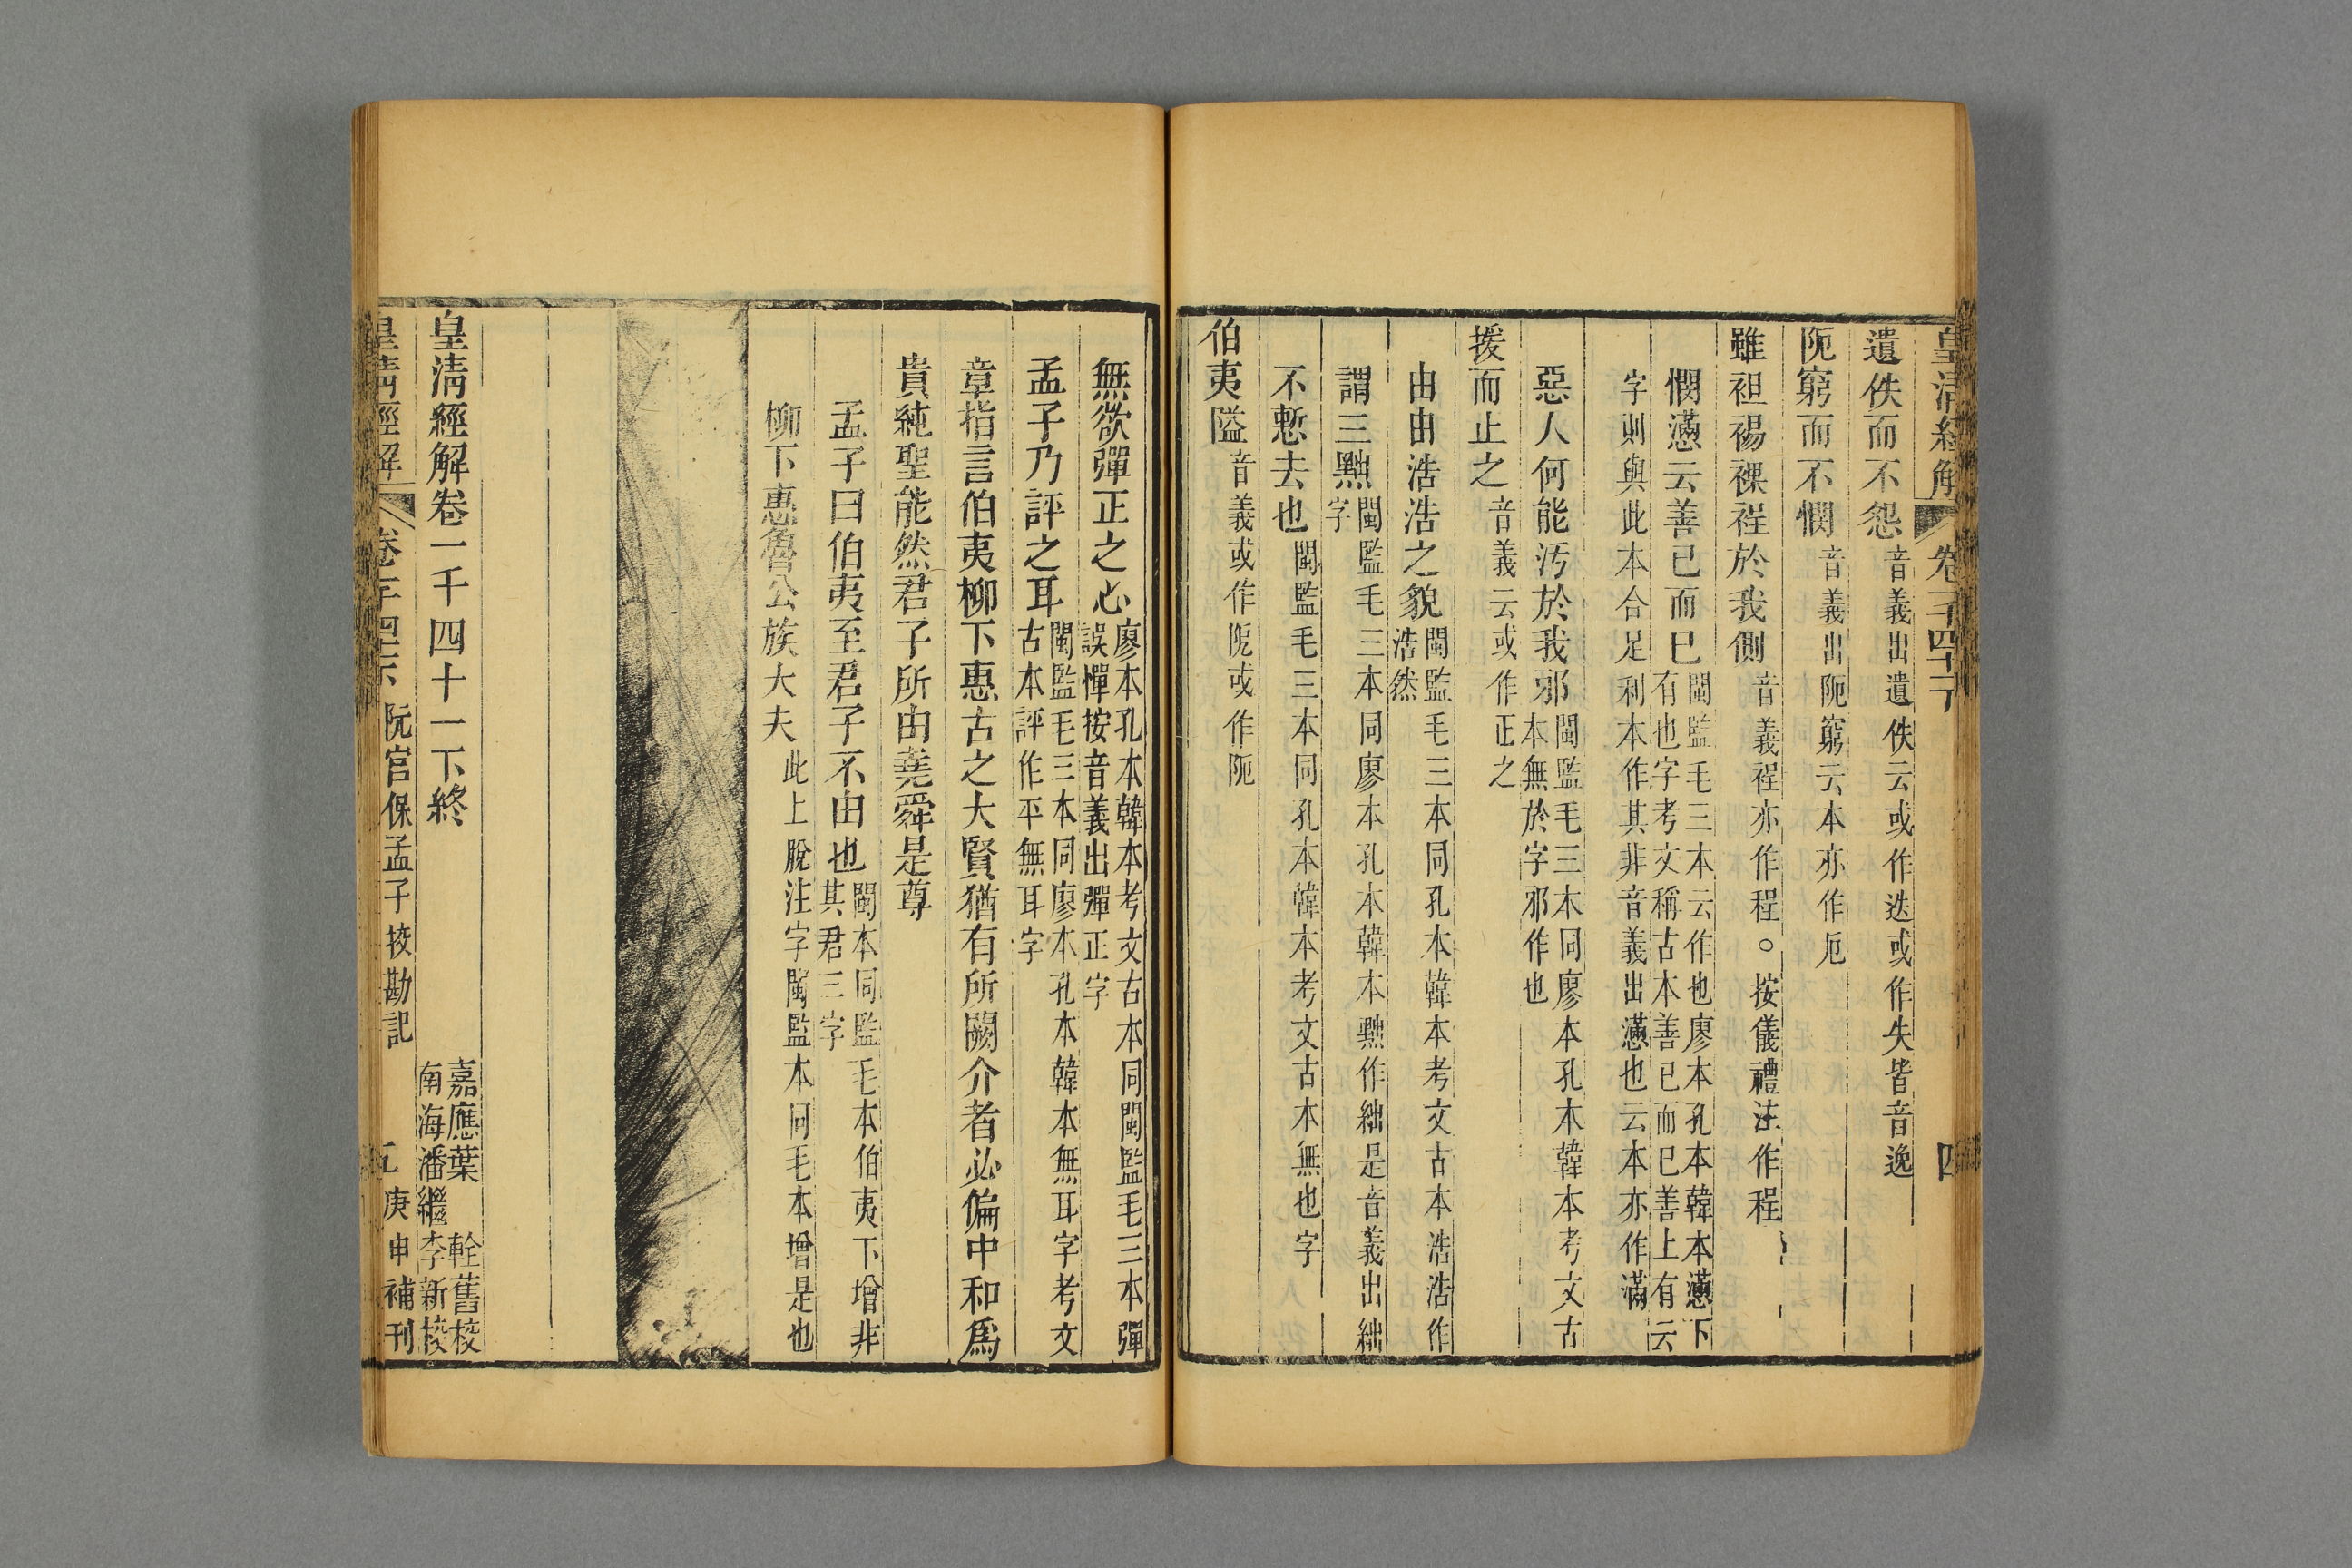 皇清經解 卷一千四十一下 四
遺佚而不怨音義出遺佚云或作迭或作失皆音逸
阨窮而不憫音義出阨窮云本亦作厄
雖袒裼裸裎於我側音義裎亦作程○按儀禮注作程
憫懣云善已而已閩監毛三本云作也廖本孔本韓本懣下
有也字考文稱古本善已而已善上有云
字則與此本合足利本作其非音義出懣也云本亦作滿
惡人何能汚於我邪閩監毛三本同廖本孔本韓本考文古
本無於字邪作也
援而止之音義云或作正之
由由浩浩之貌閩監毛三本同孔本韓本考文古本浩浩作
浩然
謂三黜閩監毛三本同廖本孔本韓本黜作絀是音義出絀
字
不慙去也閩監毛三本同孔本韓本考文古本無也字
伯夷隘音義或作阸或作阨
無欲彈正之心廖本孔本韓本考文古本同閩監毛三本彈
誤憚按音義出彈正字
孟子乃評之耳閩監毛三本同廖本孔本韓本無耳字考文
古本評作平無耳字
章指言伯夷柳下惠古之大賢猶有所闕介者必偏中和爲
貴純聖能然君子所由堯舜是尊
孟子曰伯夷至君子不由也閩本同監毛本伯夷下增非
其君三字
柳下惠魯公族大夫此上脫注字閩監本同毛本增是也
嘉應葉 輇舊校
南海潘繼李新校
皇清經解卷一千四十一下終
皇清經解 阮宮保孟子挍勘記 五 庚申補刊